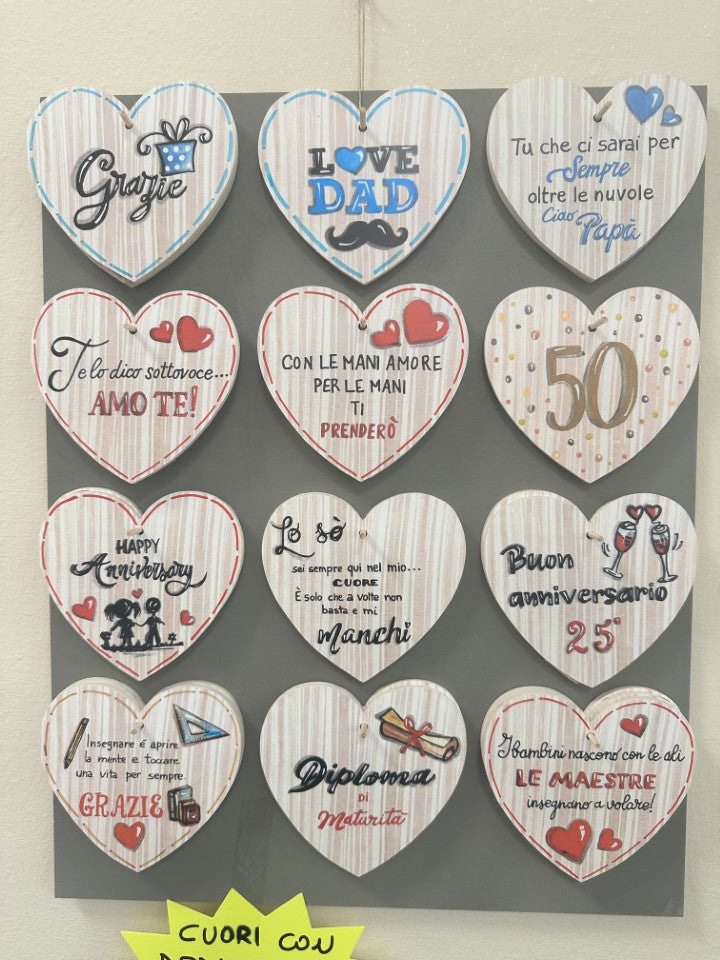 Grazie
LOVE
DAD
Tu che ci sarai per
Sempre
oltre le nuvole
Ciao
Papà
Te lo dico sottovoce...
AMO TE!
CON LE MANI AMORE
PER LE MANI
TI
PRENDERÒ
50
HAPPY
Anniversary
Lo sò
sei sempre qui nel mio...
CUORE
È solo che a volte non
basta e mi
Manchi
Buon
anniversario
25°
Insegnare é aprire
la mente e toccare
una vita per sempre.
GRAZIE
Diploma
DI
Maturità
I bambini nascono con le ali
LE MAESTRE
insegnano a volare!
CUORI CON